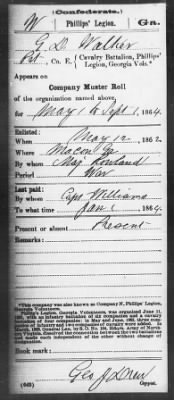 (Confederate.)
W Phillips' Legion. Ga.
G. D. Walker
Pvt, Co. E, Cavalry Battalion, Phillips' Legion, Georgia Vols.*
Appears on
Company Muster Roll
of the organization named above,
for May 1 to Sept 1, 1864.
Enlisted:
When May 12, 1862.
Where Macon Ga
By whom Maj. Rowland
Period War
Last paid:
By whom Capt Williams
To what time Jan 1, 1864.
Present or absent Present
Remarks:
*This company was also known as Company N, Phillips' Legion, Georgia Volunteers.
Phillips' Legion, Georgia Volunteers, was organized June 11,
Book mark:
(642)
Copyist.